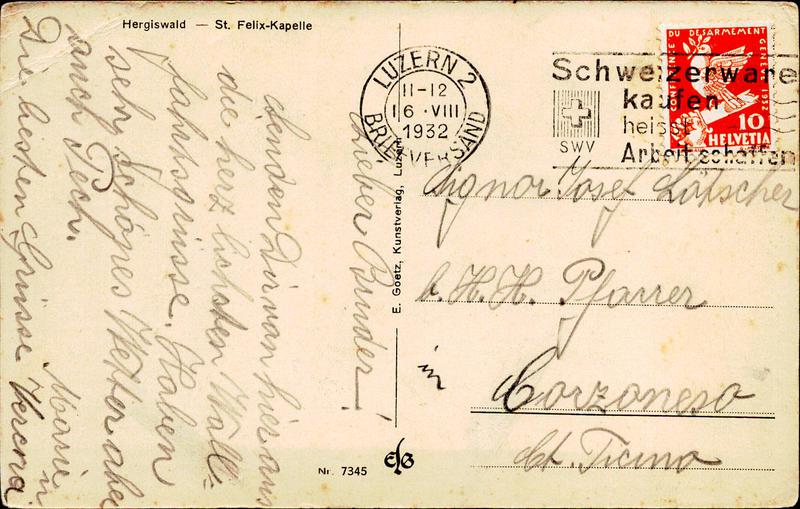 Hergiswald — St. Felix-Kapelle
Lieber Bruder!
senden Dir von hier aus
die herzlichsten Wall-
fahrtsgrüsse. Haben
sehr schönes Wetter aber
auch Pech.
Die besten Grüsse
Marie u.
Verena
E. Goetz, Kunstverlag, Luzern
Nr. 7345
LUZERN 2
11-12
16·VIII
1932
BRIEFVERSAND
Schweizerware
kaufen
heisst
Arbeit schaffen
SWV
CONFERENCE DU DESARMEMENT GENEVE 1932
10
HELVETIA
Signor Josef Lötscher
b. H. H. Pfarrer
in
Corzoneso
Ct. Ticino